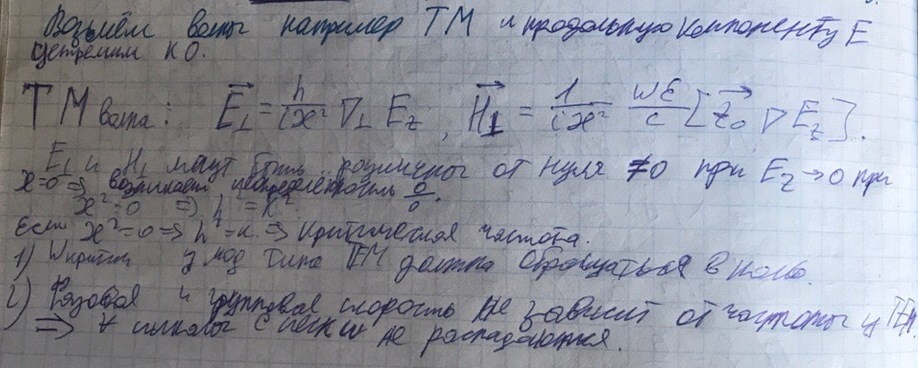 Возьмём волны например TM и продольную компоненту E
устремим к 0.
TM волна: E⃗⊥ = h/(iϰ²) ∇⊥ E_z, H⃗⊥ = 1/(iϰ²) ωε/c [z⃗₀ ∇E_z].
E⊥ и H⊥ могут быть различны от нуля ≠0 при E_z→0 при
ϰ=0 ⇒ возникает неопределённость 0/0.
ϰ²=0 ⇒ h²=k²
Если ϰ²=0 ⇒ h²=k ⇒ критическая частота.
1) ω критич у мод типа TEM должна обращаться в ноль.
2) Фазовая и групповая скорость не зависит от частоты у TEM
⇒ ∀ не распадаются.